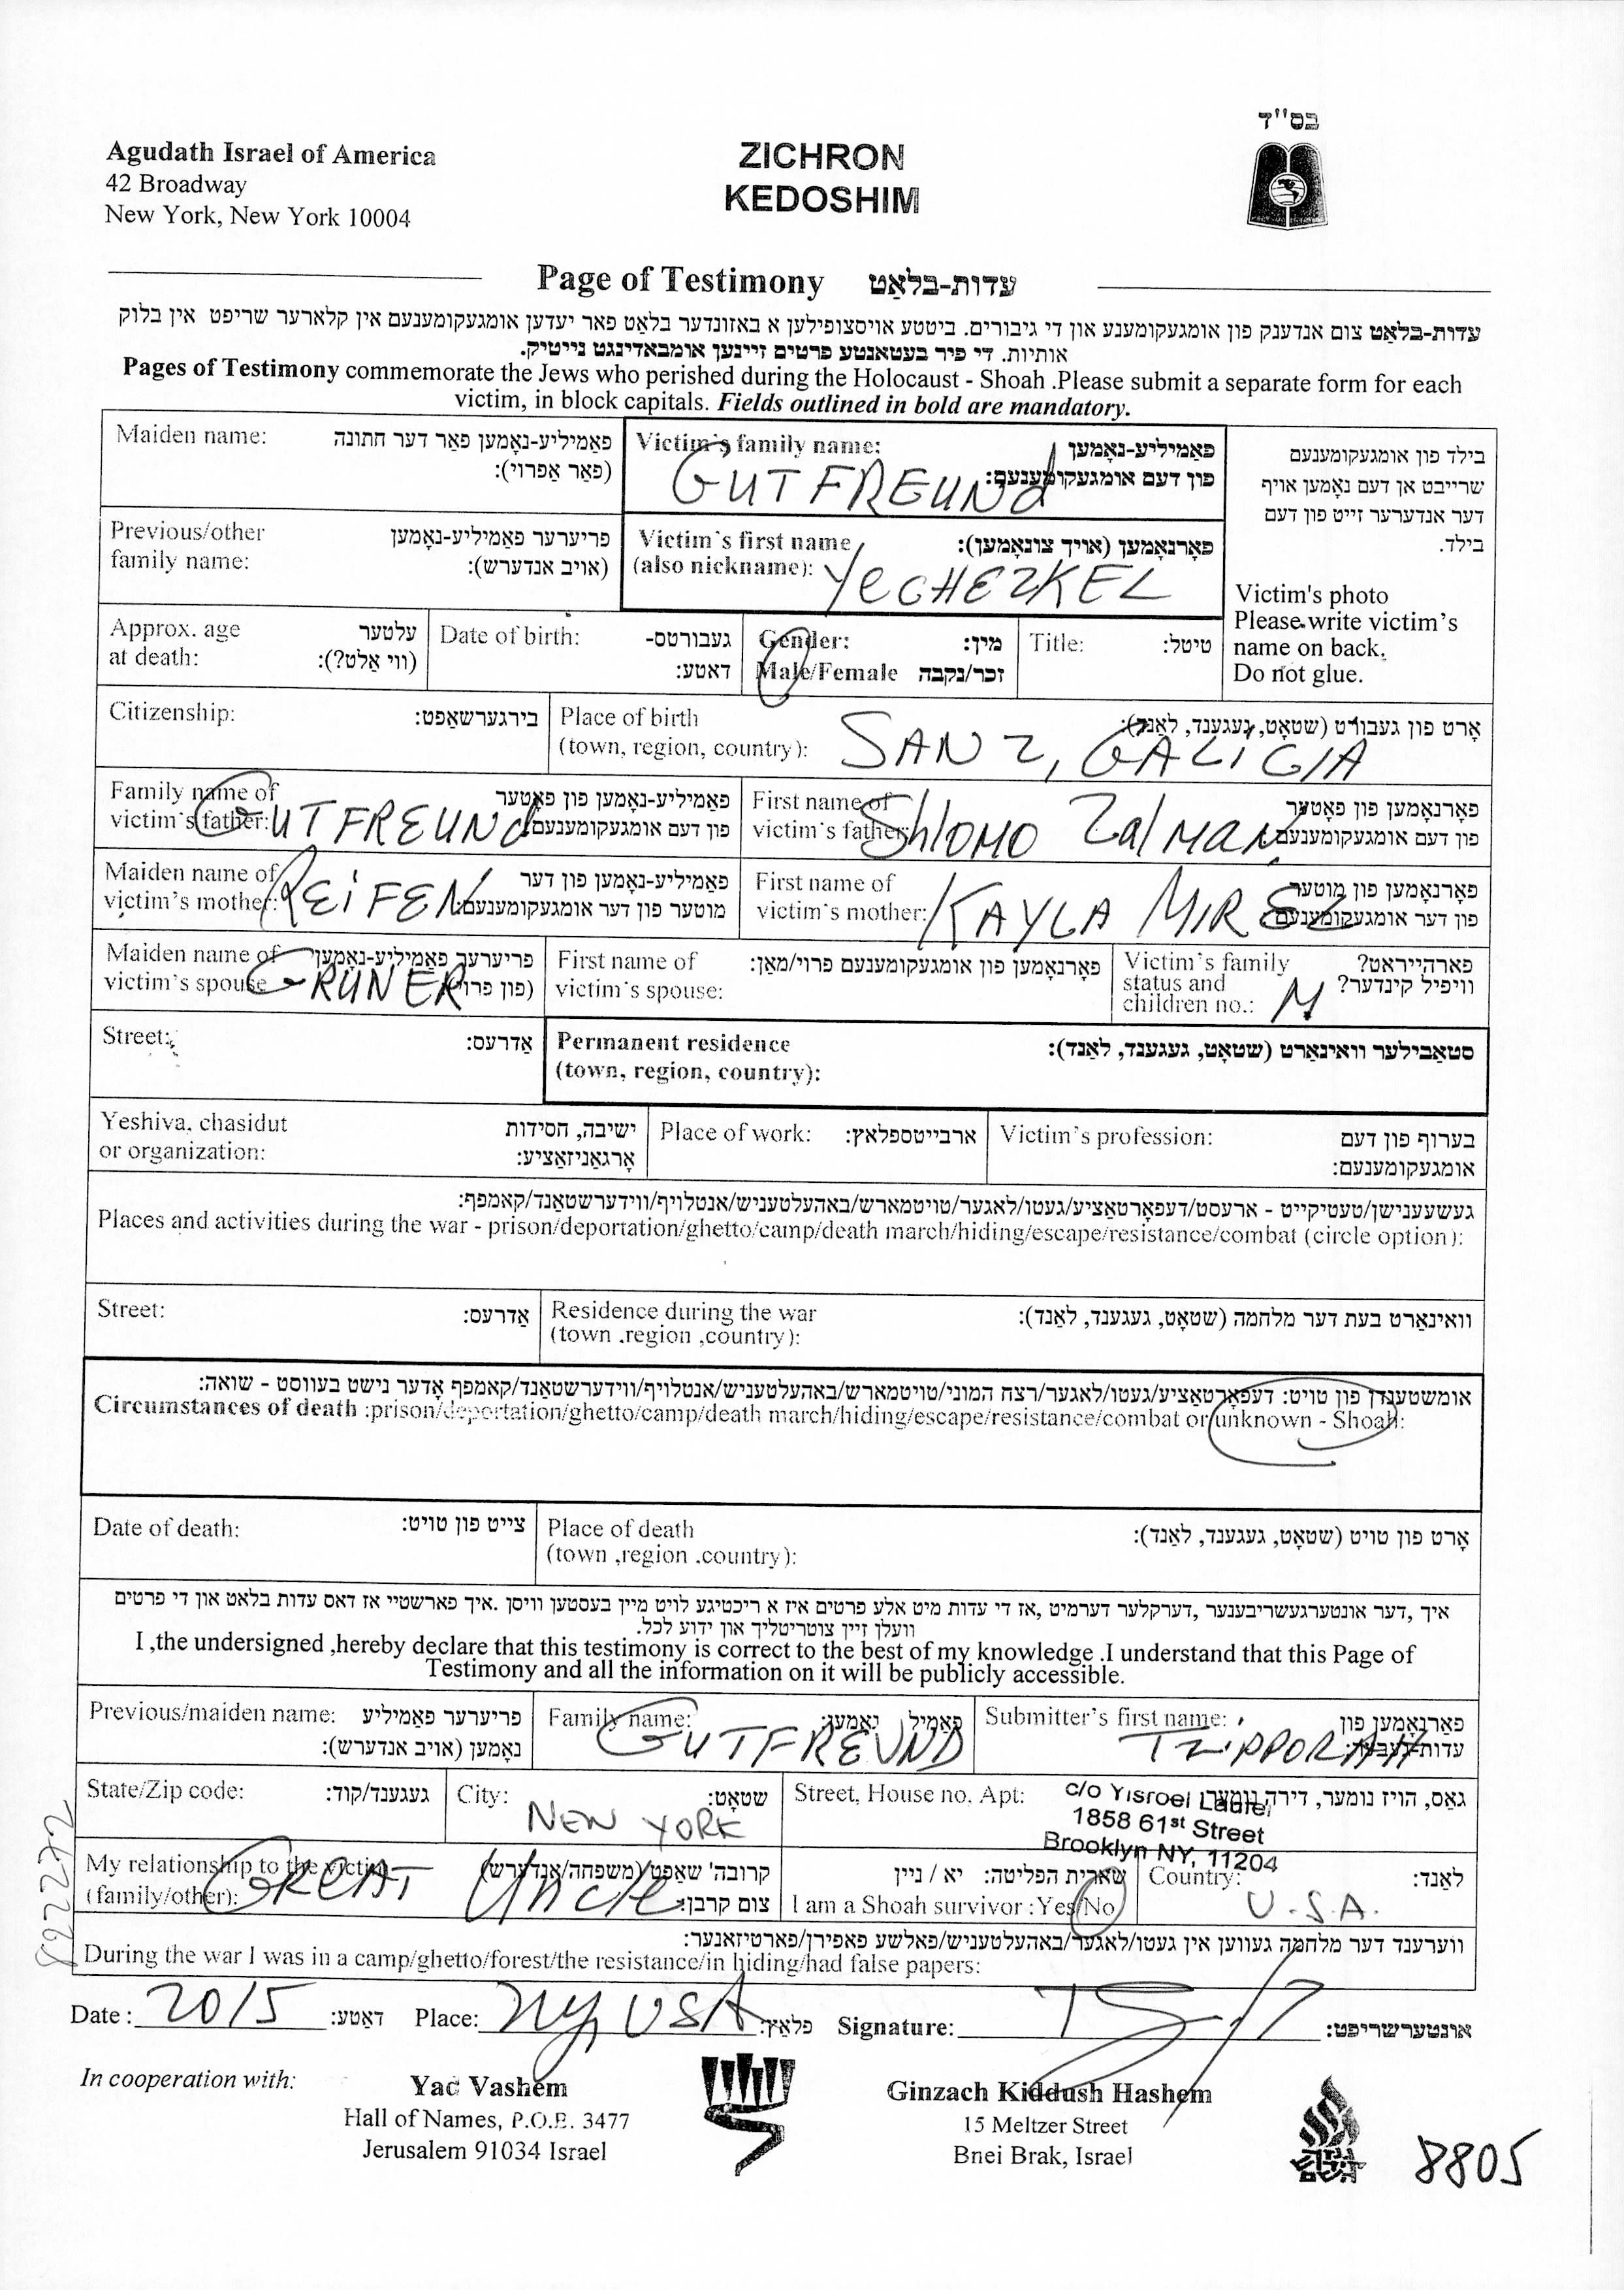 בס"ד
Agudath Israel of America
42 Broadway
New York, New York 10004
ZICHRON
KEDOSHIM
Page of Testimony עדות-בלאַט
עדות-בלאַט צום אנדענק פון אומגעקומענע און די גיבורים. ביטטע אויסצופילען א באזונדער בלאט פאר יעדען אומגעקומענעם אין קלארער שריפט אין בלוק
אותיות. די פיר בעטאנטע פרטים זיינען אומבאדינגט נייטיק.
Pages of Testimony commemorate the Jews who perished during the Holocaust - Shoah .Please submit a separate form for each
victim, in block capitals. Fields outlined in bold are mandatory.
Maiden name: פאַמיליע-נאָמען פאַר דער חתונה
(פאַר אַפרוי):
Victim's family name: פאַמיליע-נאָמען
פון דעם אומגעקומענעם:
GUTFREUNd
בילד פון אומגעקומענעם
שרייבט אן דעם נאָמען אויף
דער אנדערער זייט פון דעם
בילד.
Victim's photo
Please write victim's
name on back.
Do not glue.
Previous/other
family name:
פריערער פאַמיליע-נאָמען
(אויב אנדערש):
Victim's first name
(also nickname):
פאָרנאָמען (אויך צונאָמען):
YECHEZKEL
Approx. age
at death:
עלטער
(ווי אַלט?):
Date of birth: געבורטס-
דאטע:
Gender: מין:
Male/Female זכר/נקבה
Title: טיטל:
Citizenship: בירגערשאַפט:
Place of birth
(town, region, country):
אָרט פון געבורט (שטאָט, געגענד, לאַנד):
SANZ, GALICIA
Family name of
victim's father:
פאַמיליע-נאָמען פון פאָטער
פון דעם אומגעקומענעם:
GUTFREUNd
First name of
victim's father:
פאָרנאָמען פון פאָטער
פון דעם אומגעקומענעם:
Shlomo Zalman
Maiden name of
victim's mother:
פאַמיליע-נאָמען פון דער
מוטער פון דער אומגעקומענעם:
REIFEN
First name of
victim's mother:
פאָרנאָמען פון מוטער
פון דער אומגעקומענעם:
KAYLA MIREL
Maiden name of
victim's spouse
פריערער פאַמיליע-נאָמען
(פון פרוי
GRUNER
First name of
victim's spouse:
פאָרנאָמען פון אומגעקומענעם פרוי/מאַן:
Victim's family
status and
children no.:
פארהייראט?
וויפיל קינדער?
M
Street: אַדרעס:
Permanent residence
(town, region, country):
סטאַבילער וואינאָרט (שטאָט, געגענד, לאַנד):
Yeshiva, chasidut
or organization:
ישיבה, חסידות
אָרגאַניזאַציע:
Place of work: ארבייטספלאץ:
Victim's profession: בערוף פון דעם
אומגעקומענעם:
געשעענישן/טעטיקייט - ארעסט/דעפאָרטאַציע/געטו/לאגער/טויטמארש/באהעלטעניש/אנטלויף/ווידערשטאַנד/קאמפף:
Places and activities during the war - prison/deportation/ghetto/camp/death march/hiding/escape/resistance/combat (circle option):
Street: אַדרעס:
Residence during the war
(town .region ,country):
וואינאָרט בעת דער מלחמה (שטאָט, געגענד, לאַנד):
אומשטענדן פון טויט: דעפאָרטאַציע/געטו/לאגער/רצח המוני/טויטמארש/באהעלטעניש/אנטלויף/ווידערשטאַנד/קאמפף אָדער נישט בעווסט - שואה:
Circumstances of death :prison/deportation/ghetto/camp/death march/hiding/escape/resistance/combat or unknown - Shoah:
Date of death: צייט פון טויט:
Place of death
(town ,region .country):
אָרט פון טויט (שטאָט, געגענד, לאַנד):
איך ,דער אונטערגעשריבענער ,דערקלער דערמיט ,אז די עדות מיט אלע פרטים איז א ריכטיגע לויט מיין בעסטען וויסן .איך פארשטיי אז דאס עדות בלאט און די פרטים
וועלן זיין צוטריטליך און ידוע לכל.
I ,the undersigned ,hereby declare that this testimony is correct to the best of my knowledge .I understand that this Page of
Testimony and all the information on it will be publicly accessible.
Previous/maiden name: פריערער פאַמיליע
נאָמען (אויב אנדערש):
Family name: פאַמיל נאָמען:
GUTFREUND
Submitter's first name: פאָרנאָמען פון
TZIPPORAH
State/Zip code: געגענד/קוד:
City: שטאָט:
NEW YORK
Street, House no. Apt: גאַס, הויז נומער, דירה נומער:
c/o Yisroel
1858 61st Street
Brooklyn NY, 11204
My relationship to the victim
(family/other):
קרובה' שאַפט (משפחה/אַנדערש)
צום קרבן:
GREAT Uncle
שארית הפליטה: יא / ניין
I am a Shoah survivor :Yes/No
Country: לאַנד:
U.S.A.
ווערענד דער מלחמה געווען אין געטו/לאגער/באהעלטעניש/פאלשע פאפירן/פארטיזאנער:
During the war I was in a camp/ghetto/forest/the resistance/in hiding/had false papers:
822272
Date : 2015 דאַטע: Place: NY, USA פלאַץ: Signature: אונטערשריפט:
In cooperation with:
Yad Vashem
Hall of Names, P.O.B. 3477
Jerusalem 91034 Israel
Ginzach Kiddush Hashem
15 Meltzer Street
Bnei Brak, Israel
8805